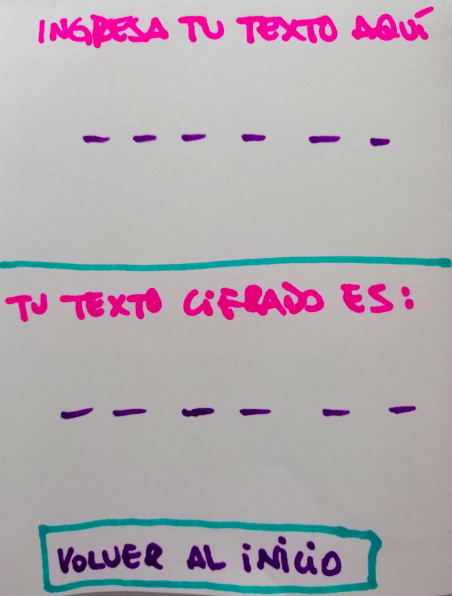 INGRESA TU TEXTO AQUÍ
— — — — — —
TU TEXTO CIFRADO ES:
— — — — — —
VOLVER AL INICIO